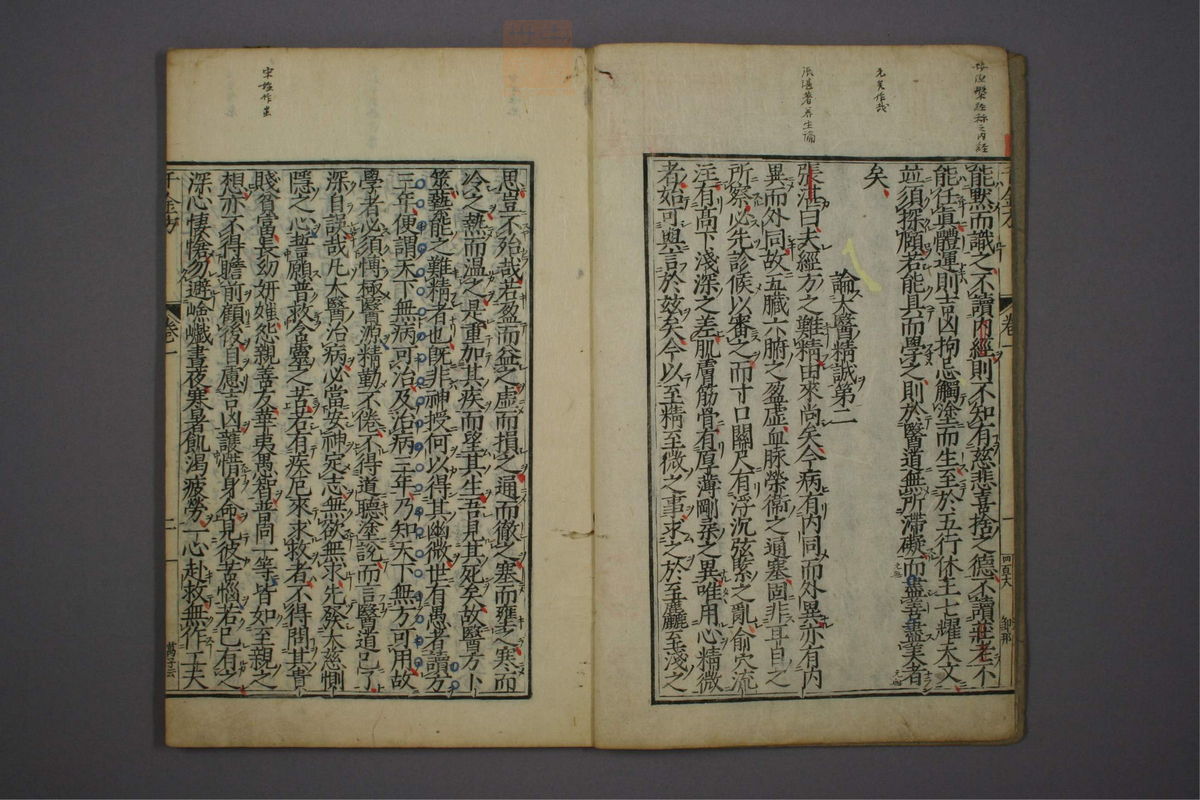 能默而識之不讀内經則不知有慈悲喜捨之德不讀莊老不
能任眞體運則吉凶拘忌觸塗而生至於五行休王七耀天文
並須探賾若能具而學之則於醫道無所滯礙而盡善盡美者
矣
論大醫精誠第二
張湛曰夫經方之難精由來尚矣今病有内同而外異亦有内
異而外同故五臟六腑之盈虚血脉榮衛之通塞固非耳目之
所察必先診候以審之而寸口關尺有浮沉弦緊之亂俞穴流
注有高下淺深之差肌膚筋骨有厚薄剛柔之異唯用心精微
者始可與言於兹矣今以至精至微之事求之於至麤至淺之
思豈不殆哉若盈而益之虚而損之通而徹之塞而壅之寒而
冷之熱而温之是重加其疾而望其生吾見其死矣故醫方卜
筮藝能之難精者也既非神授何以得其幽微世有愚者讀方
三年便謂天下無病可治及治病三年乃知天下無方可用故
學者必須博極醫源精勤不倦不得道聽塗說而言醫道已了
深自誤哉凡大醫治病必當安神定志無欲無求先發大慈惻
隱之心誓願普救含靈之苦若有疾厄來求救者不得問其貴
賤貧富長幼妍媸怨親善友華夷愚智普同一等皆如至親之
想亦不得瞻前顧後自慮吉凶護惜身命見彼苦惱若已有之
深心悽愴勿避嶮巇晝夜寒暑飢渴疲勞一心赴救無作工夫
千金方
卷一
一
四百六
千金方
卷一
二
張湛著養生論